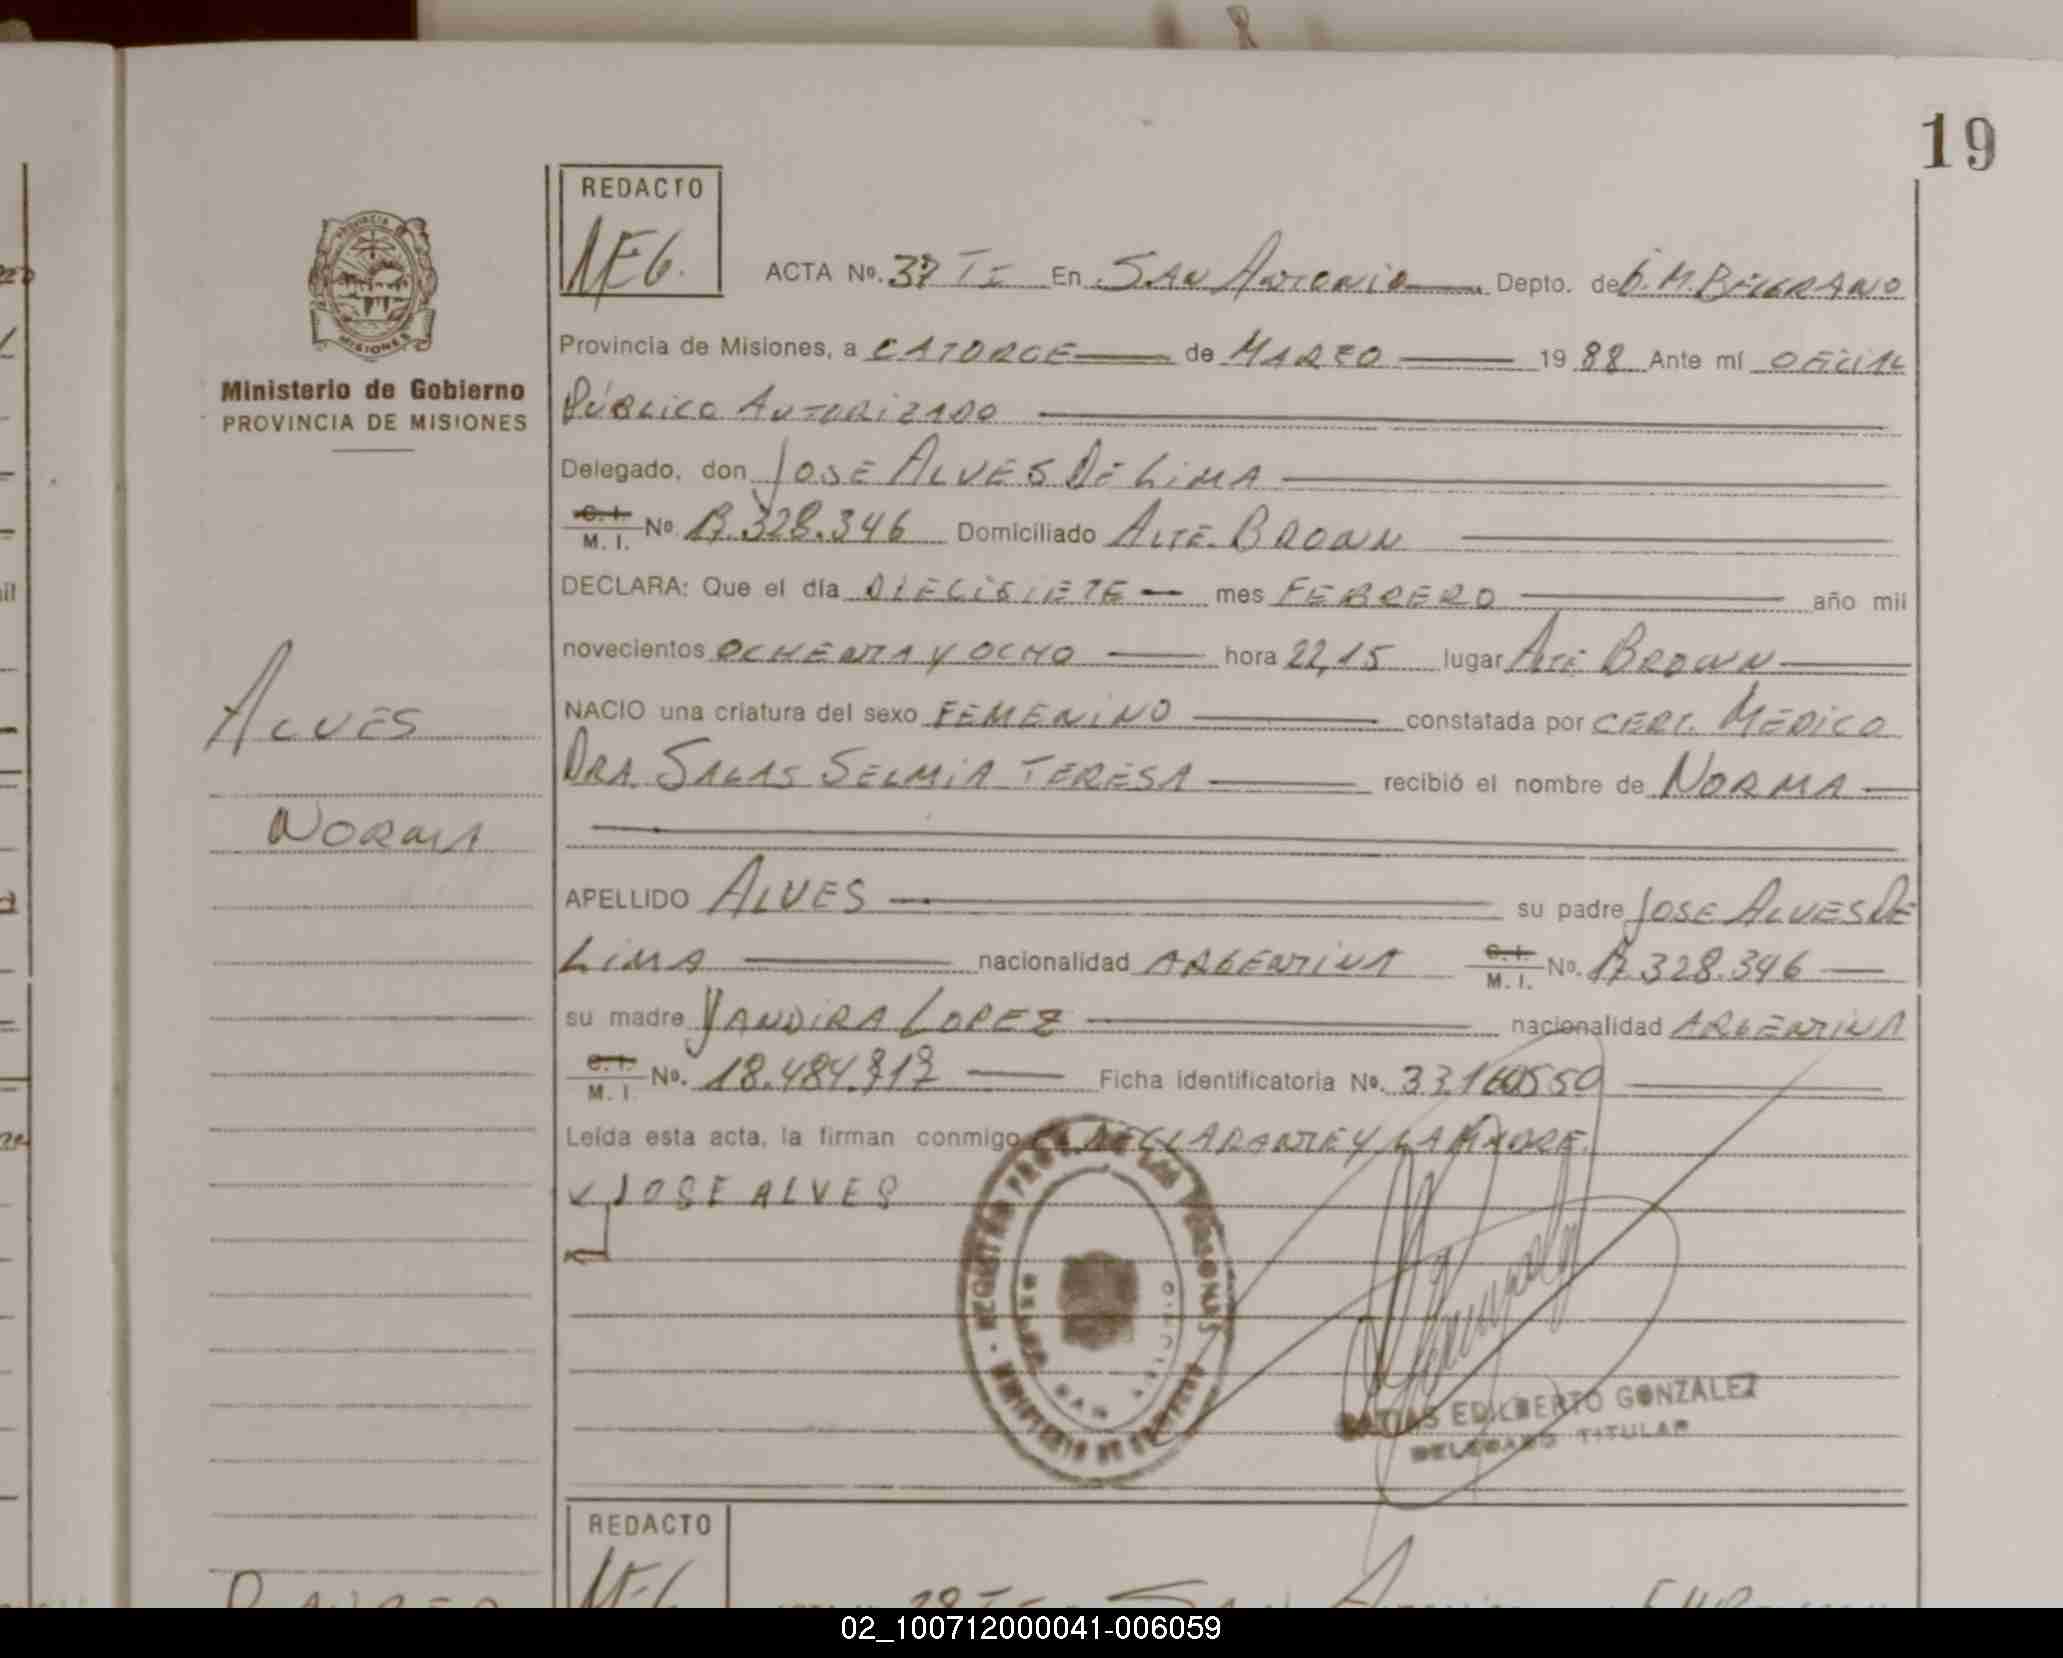 19
REDACTO
MEG.
ACTA Nº. 37 TI En SAN ANTONIO Depto. de G. M. BELGRANO
Provincia de Misiones, a CATORCE de MARZO 19 88 Ante mí OFICIAL
PÚBLICO AUTORIZADO
Ministerio de Gobierno
PROVINCIA DE MISIONES
Delegado, don JOSE ALVES DE LIMA
C. I.
M. I. Nº. 17.328.346 Domiciliado ALTE. BROWN
DECLARA: Que el día DIECISIETE mes FEBRERO año mil
novecientos OCHENTA Y OCHO hora 22,15 lugar ALTE BROWN
NACIO una criatura del sexo FEMENINO constatada por CERT. MEDICO
DRA. SALAS SELMIA TERESA recibió el nombre de NORMA
ALVES
NORMA
APELLIDO ALVES su padre JOSE ALVES DE
LIMA nacionalidad ARGENTINA C. I. M. I. Nº. 17.328.346
su madre YANDIRA LOPEZ nacionalidad ARGENTINA
C. I. M. I. Nº. 18.484. Ficha identificatoria Nº. 33.160550
Leída esta acta, la firman conmigo EL DECLARANTE Y LA MADRE.
JOSE ALVES
REGISTRO PROV. DE LAS PERSONAS
MINISTERIO DE GOBIERNO
SAN ANTONIO
MATIAS EDILBERTO GONZALEZ
DELEGADO TITULAR
REDACTO
02_100712000041-006059